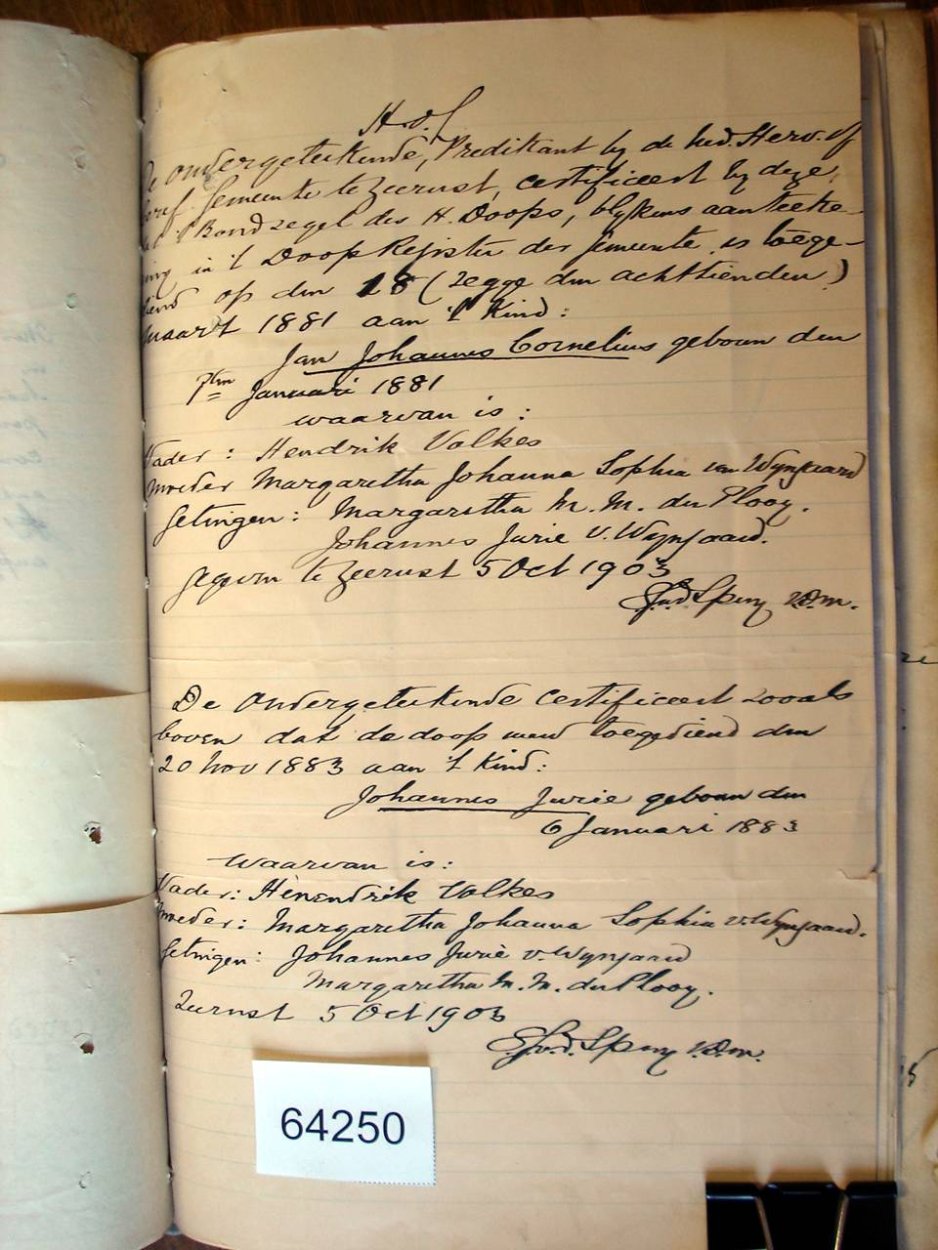 H.d.S
De ondergeteekende, Predikant by de Ned. Herv. of
Geref. Gemeente te Zeerust, certificeert by deze,
dat 't Bondzegel des H. Doops, blykens aanteeke-
ning in 't Doop Register der Gemeente, is toege-
diend op den 18 (zegge den achttienden)
Maart 1881 aan 't Kind:
Jan Johannes Cornelius geboren den
7den Januari 1881
waarvan is:
Vader: Hendrik Valkes
Moeder Margaretha Johanna Sophia van Wyngaard
Getuigen: Margaretha M. M. du Plooy.
Johannes Jurie v. Wyngaard.
Gegeven te Zeerust 5 Oct 1903
V.D.M.
De Ondergeteekende certificeert zooals
boven dat de doop werd toegediend den
20 Nov 1883 aan 't Kind:
Johannes Jurie geboren den
6 Januari 1883
waarvan is:
Vader: Henendrik Valkes
Moeder: Margaretha Johanna Sophia v. Wyngaard.
Getuigen: Johannes Jurie v Wyngaard
Margaretha M. M. du Plooy.
Zeerust 5 Oct 1903
V.D.M.
64250